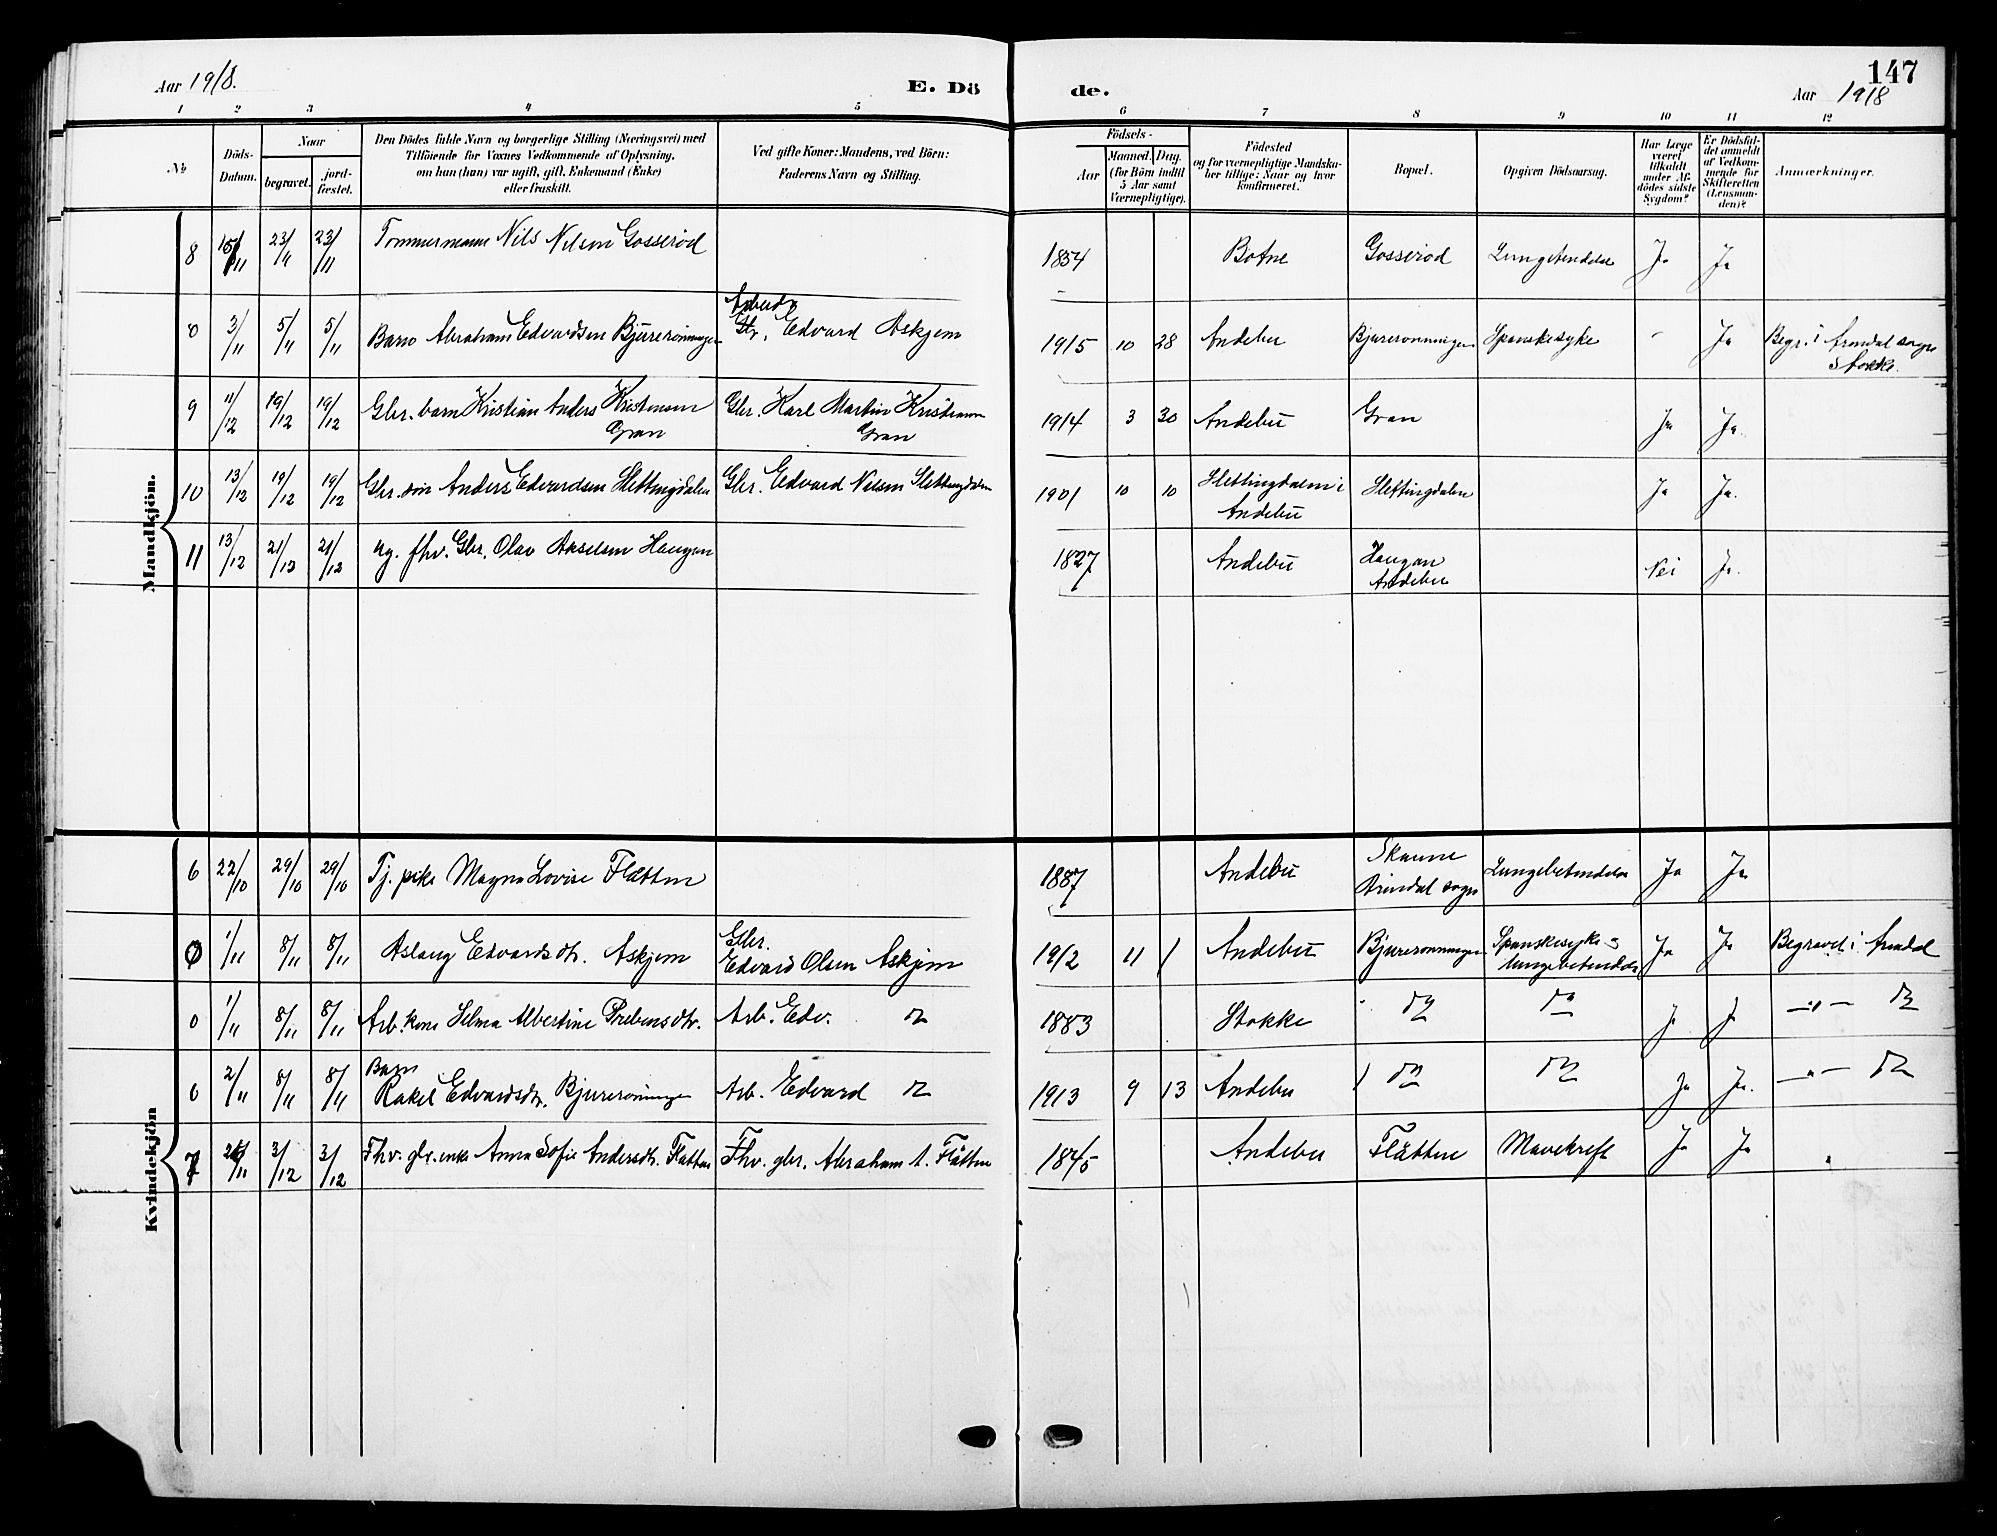 147
Aar 1918.
E. Dö
de.
Aar 1918
1 2 3 4 5 6 7 8 9 10 11 12
No
Döds-Datum.
Naar
begravet.
jord-fæstet.
Den Dödes fulde Navn og borgerlige Stilling (Næringsvei) med
Tilföiende for Voxnes Vedkommende af Oplysning,
om han (hun) var ugift, gift, Enkemand (Enke)
eller fraskilt.
Ved gifte Koner: Mandens, ved Börn:
Faderens Navn og Stilling.
Födsels-
Aar
Maaned. Dag.
(for Börn indtil
5 Aar samt
Værnepligtige).
Födested
og for værnepligtige Mandska-
ber tillige: Naar og hvor
konfirmeret.
Bopæl.
Opgiven Dödsaarsag.
Har Læge
været
tilkaldt
under Af-
dödes sidste
Sygdom?
Er Dödsfal-
det anmeldt
af Vedkom-
mende for
Skifteretten
(Lensman-
den)?
Anmærkninger.
Mandkjön.
8 15/11 23/11 23/11 Tømmermann Nils Nilsen Gosserød 1854 Botne Gosserød Lungebetendelse Ja Ja
Arbeider
0 3/11 5/11 5/11 Barn Abraham Edvardsen Bjurerønningen Gbr. Edvard Askjem 1915 10 28 Andebu Bjurerønningen Spanskesyke - Ja Begr. i Arendal sogn
Stokke.
9 11/12 19/12 19/12 Gbr. barn Kristian Anders Kristensen Gbr. Karl Martin Kristensen 1914 3 30 Andebu Gran Ja Ja.
Gran Gran
10 13/12 19/12 19/12 Gbr. søn Anders Edvardsen Slettingdalen Gbr. Edvard Nilsen Slettingdalen 1901 10 10 Slettingdalen i Slettingdalen Ja Ja.
Andebu
11 13/12 21/12 21/12 Ug. fhv. Gbr. Olav Akselsen Haugan 1827 Andebu Haugan Nei Ja.
Andebu
Kvindekjön
6 22/10 29/10 29/10 Tj. pike Magna Lovise Flåtten 1887 Andebu Skaune Lungebetendelse Ja Ja
sogn
Gbr.
0 1/11 8/11 8/11 Aslaug Edvardsdtr. Askjem Edvard Olsen Askjem 1912 11 1 Andebu Bjurerønningen Spanskesyke = Ja Ja Begravet i Arendal
lungebetendelse
0 1/11 8/11 8/11 Arb. kone Selma Albertine Prebensdtr. Arb. Edv. do 1883 Stokke do do Ja Ja —"— do
Barn
0 2/11 8/11 8/11 Rakel Edvardsdtr. Bjurerønningen Arb. Edvard do 1913 9 13 Andebu do do Ja Ja. —"— do
7 26/11 3/12 3/12 Fhv. gbr. enke Anna Sofie Andersdtr. Flåtten Fhv. gbr. Abraham A. Flåtten 1845 Andebu Flåtten Mavekreft Ja Ja